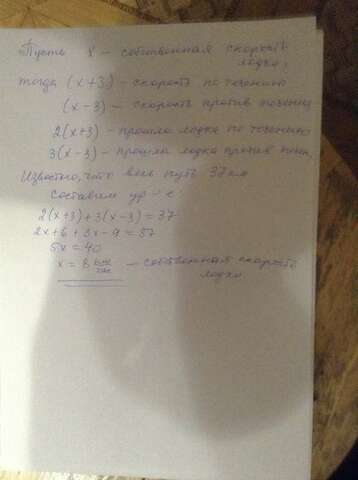 Пусть х – собственная скорость
лодки,
тогда (х+3) – скорость по течению
(х-3) – скорость против течения
2(х+3) – прошла лодка по течению
3(х-3) – прошла лодка против теч.
Известно, что весь путь 37 км
Составим ур-е:
2(х+3)+3(х-3)=37
2х+6+3х-9=37
5х=40
х=8 км/час – собственная скорость
лодки